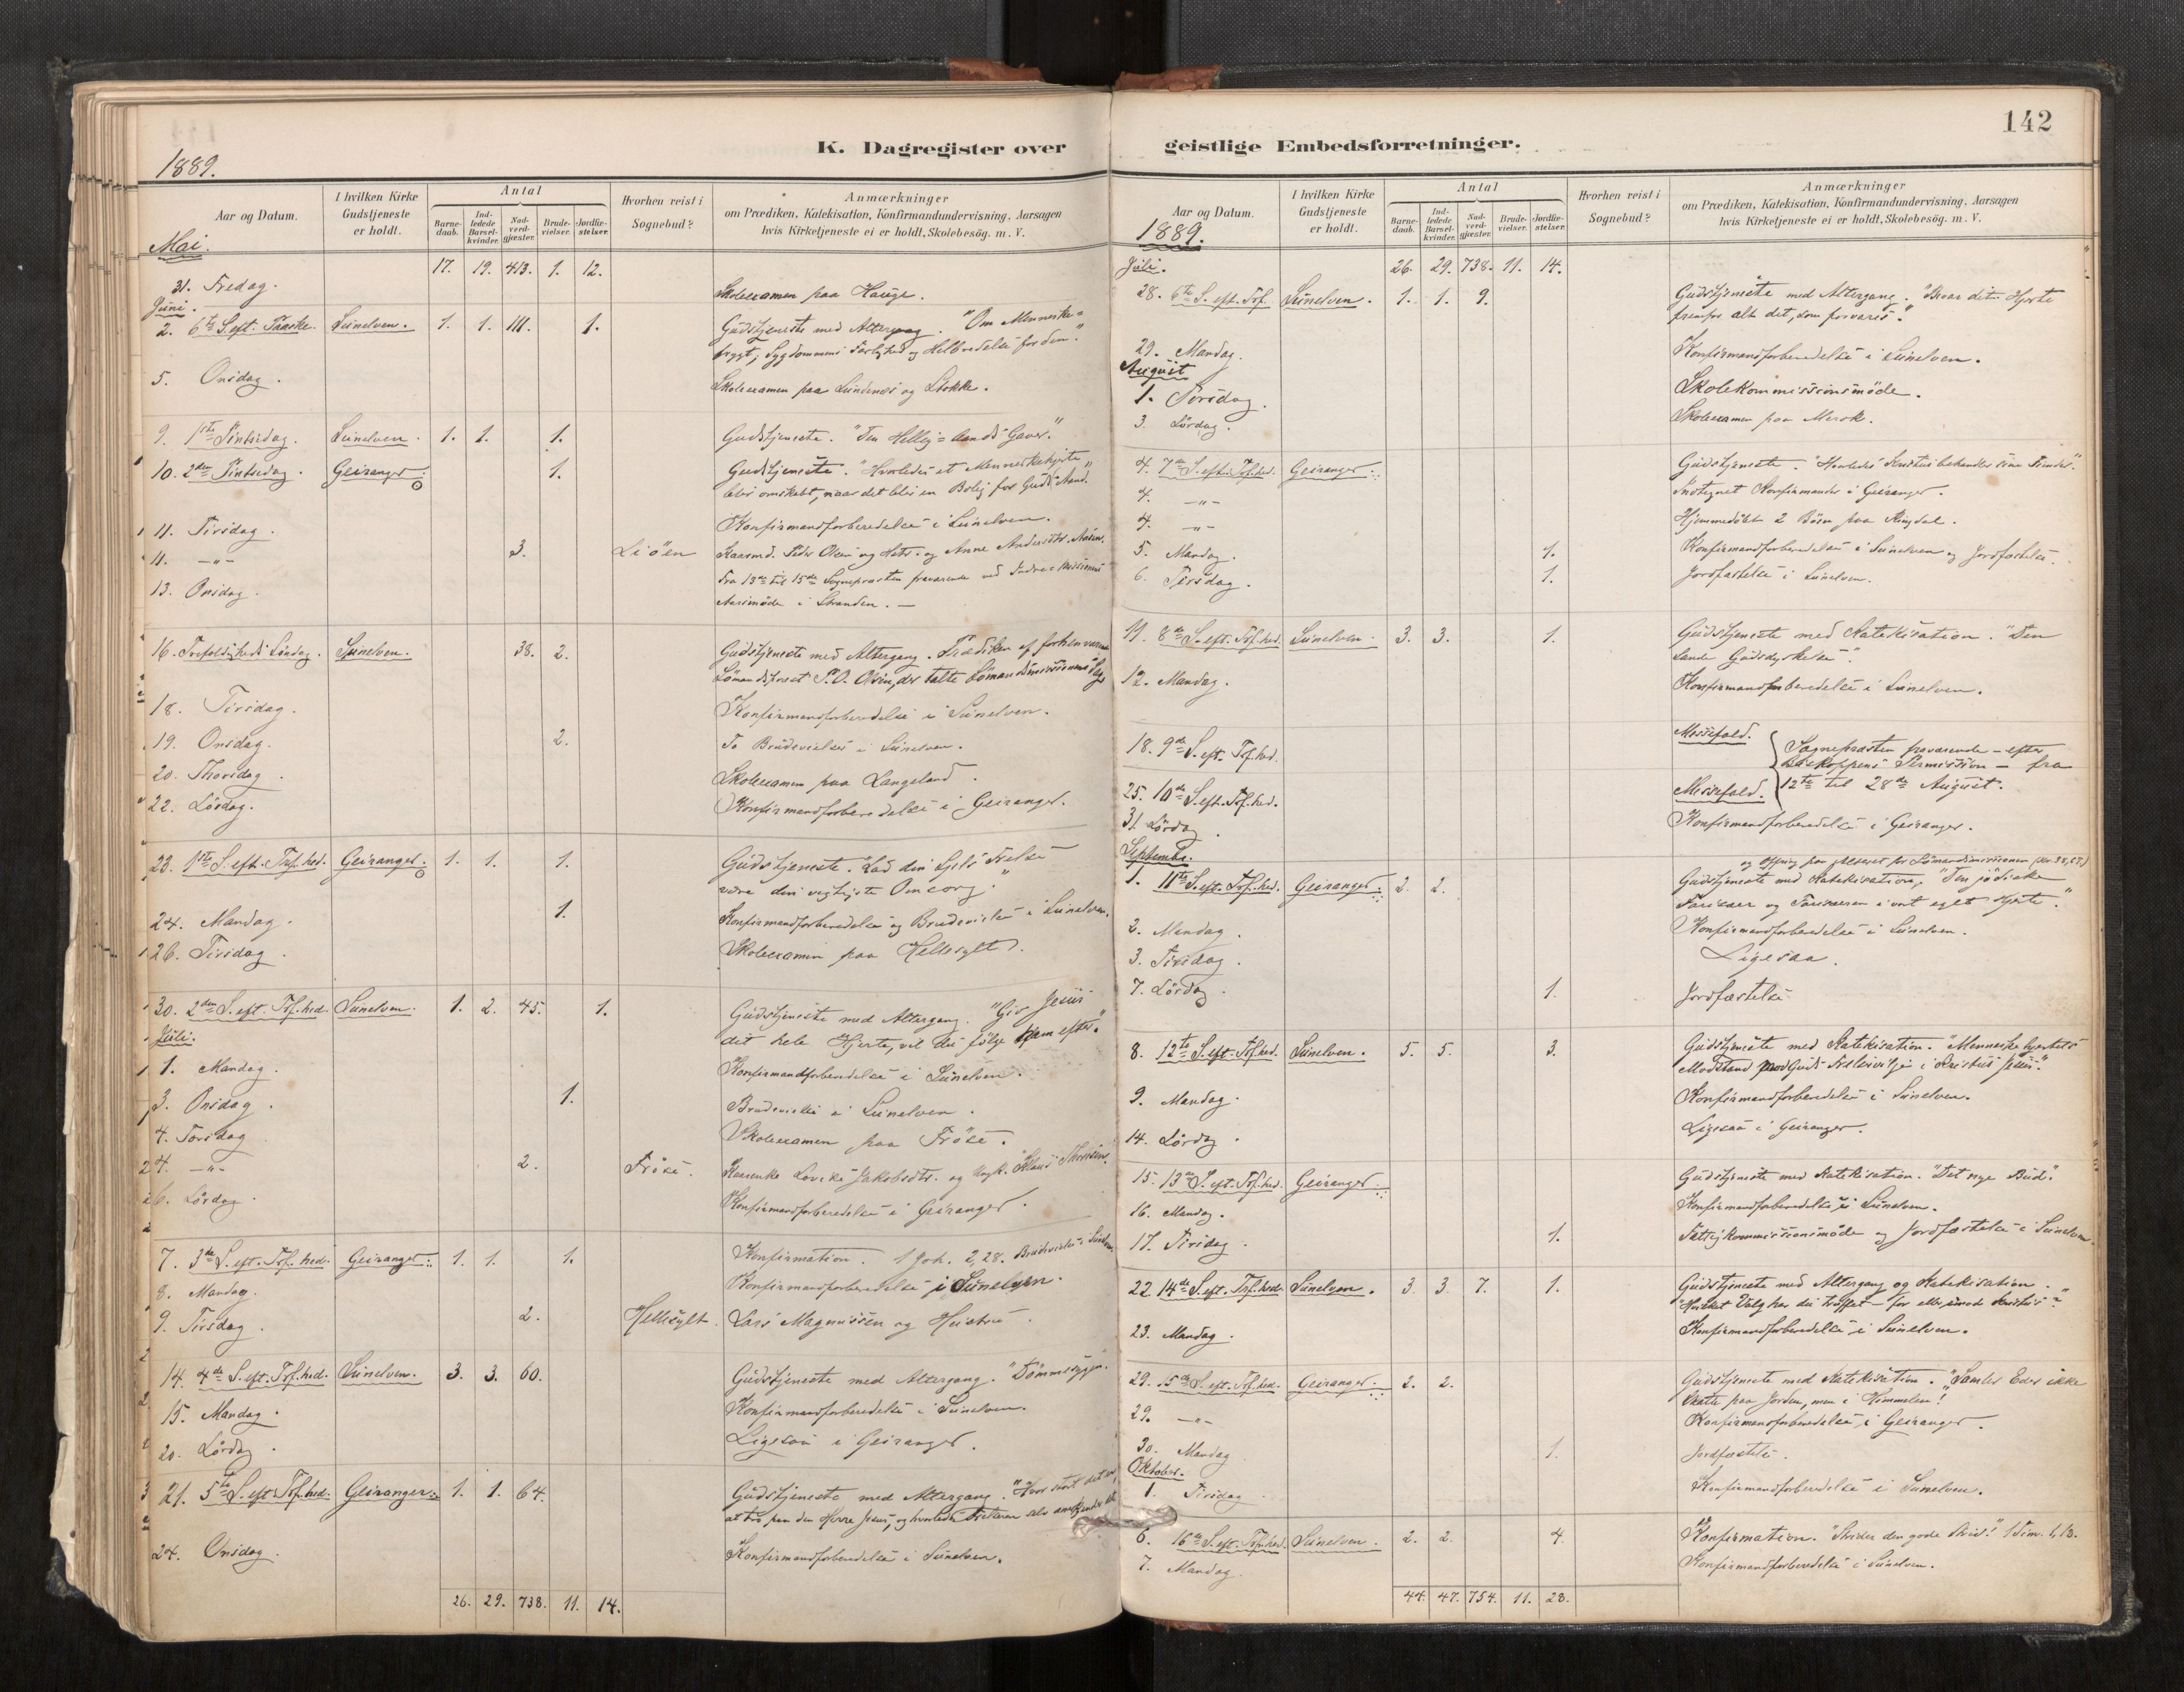 142
K. Dagregister over geistlige Embedsforretninger.
1889.
Aar og Datum.
I hvilken Kirke Gudstjeneste er holdt.
Antal
Barnedaab.
Indledede Barselkvinder.
Nadverdgjæster.
Brudevielser.
Jordfæstelser.
Hvorhen reist i Sognebud?
Anmærkninger
om Prædiken, Katekisation, Konfirmandundervisning, Aarsagen
hvis Kirketjeneste ei er holdt, Skolebesög. m. V.
Mai.
17. 19. 413. 1. 12.
31. Fredag. Skoleexamen paa Hauge.
Juni.
2. 6te S. eft. Paaske. Sunelven. 1. 1. 111. 1. Gudstjeneste med Altergang. "Om Menneske=
frygt, Sygdommens Farlighed og Helbredelse for den."
5. Onsdag. Skoleexamen paa Lundenes og Stokke.
9. 1ste Pintsedag. Sunelven. 1. 1. 1. Gudstjeneste. "Den Hellig=Aands Gaver."
10. 2den Pintsedag. Geiranger. 1. Gudstjeneste. "Hvorledes et Menneskehjerte
blir omskabt, naar det blir en Bolig for Guds Aand."
11. Tirsdag. Konfirmandforberedelse i Sunelven.
11. -"- 3. Liöen Kaarmd. Peder Olsen og Hstr. og Anne Andersdtr.
13. Onsdag. Fra 13de til 15de Sognepresten fraværende ved Indre=Missionens
Aarsmöde i Stranden. —
16. Trefoldigheds Söndag. Sunelven. 38. 2. Gudstjeneste med Altergang. Prædiken af forhenværende
Sömandsprest P. O. Olsen, der talte Sömandsmissionens Sag
18. Tirsdag. Konfirmandforberedelse i Sunelven.
19. Onsdag. 2. To Brudevielser i Sunelven.
20. Thorsdag. Skoleexamen paa Langeland.
22. Lördag. Konfirmandforberedelse i Geiranger.
23. 1ste S. eft. Tref.hed. Geiranger. 1. 1. 1. Gudstjeneste. "Lad din Sjels Frelse
være din vigtigste Omsorg."
24. Mandag. 1. Konfirmandforberedelse og Brudevielse i Sunelven.
26. Tirsdag. Skoleexamen paa Hellesylt.
30. 2den S. eft. Tref.hed. Sunelven. 1. 2. 45. 1. Gudstjeneste med Altergang. "Giv Jesus
dit hele Hjerte, vil du fölge ham efter."
Juli.
1. Mandag. Konfirmandforberedelse i Sunelven.
3. Onsdag. 1. Brudevielse i Sunelven.
4. Torsdag Skoleexamen paa Fröse.
4. -"- 2. Fröse. Kaarenke Lovise Jakobsdtr. og
6. Lördag. Konfirmandforberedelse i Geiranger.
7. 3de S. eft. Tref.hed. Geiranger. 1. 1. 1. Konfirmation. 1 Joh. 2,28. Brudevielse i Sunelven.
8. Mandag. Konfirmandforberedelse i Sunelven.
9. Tirsdag. 2. Hellesylt. Lars Magnussen og Hustru.
14. 4de S. eft. Tref.hed. Sunelven. 3. 3. 60. Gudstjeneste med Altergang. "Dömmesyge".
15. Mandag. Konfirmandforberedelse i Sunelven.
20. Lördag. Ligesaa i Geiranger.
21. 5te S. eft. Tref.hed. Geiranger. 1. 1. 64. Gudstjeneste med Altergang. "Hvor stort det er,
at tro paa den Herre Jesus, og hvorledes
24. Onsdag. Konfirmandforberedelse i Sunelven.
26. 29. 738. 11. 14.
Aar og Datum.
I hvilken Kirke Gudstjeneste er holdt.
Antal
Barnedaab.
Indledede Barselkvinder.
Nadverdgjæster.
Brudevielser.
Jordfæstelser.
Hvorhen reist i Sognebud?
Anmærkninger
om Prædiken, Katekisation, Konfirmandundervisning, Aarsagen
hvis Kirketjeneste ei er holdt, Skolebesög. m. V.
1889.
Juli. 26. 29. 738. 11. 14.
28. 6te S. eft. Tref. Sunelven. 1. 1. 9. Gudstjeneste med Altergang. "Bevar dit Hjerte
fremfor alt det, som forvares."
29. Mandag. Konfirmandforberedelse i Sunelven.
August
1. Torsdag. Skolekommissionsmöde.
3. Lördag. Skoleexamen paa Merok.
4. 7de S. eft. Tref.hed. Geiranger. Gudstjeneste. "Hvorledes Kristus behandler sine Fiender."
4. -"- Indtegnet Konfirmander i Geiranger.
4. -"- Hjemmedöbt 2 Börn paa Ringdal.
5. Mandag. 1. Konfirmandforberedelse i Sunelven og Jordfæstelse.
6. Tirsdag. 1. Jordfæstelse i Sunelven.
11. 8de S. eft. Tref.hed. Sunelven. 3. 3. 1. Gudstjeneste med Katekisation. "Den
sande Gudsdyrkelse".
12. Mandag. Konfirmandforberedelse i Sunelven.
18. 9de S. eft. Tref.hed. Messefald.
Sognepresten fraværende – efter
Biskoppens Permission – fra
12te til 28de August.
25. 10de S. eft. Tref.hed. Messefald.
31. Lördag. Konfirmandforberedelse i Geiranger.
Septembr.
og Ofring paa Alteret for Sömandsmissionen (Kr. 38,67.)
1. 11te S. eft. Tref.hed. Geiranger. 2. 2. Gudstjeneste med Katekisation, "Den jödiske
Farisæer og Farisæeren i vort eget Hjerte."
2. Mandag. Konfirmandforberedelse i Sunelven.
3. Tirsdag. Ligesaa.
7. Lördag. 1. Jordfæstelse
8. 12te S. eft. Tref.hed. Sunelven. 5. 5. 3. Gudstjeneste med Katekisation. "Menneskehjertets
Modstand mod Guds Frelsevilje i Kristus Jesus."
9. Mandag. Konfirmandforberedelse i Sunelven.
14. Lördag. Ligesaa i Geiranger.
15. 13de S. eft. Tref.hed. Geiranger. Gudstjeneste med Katekisation. "Det nye Bud".
16. Mandag. Konfirmandforberedelse i Sunelven.
17. Tirsdag. 1. Fattigkommissionsmöde og Jordfæstelse i Sunelven.
22. 14de S. eft. Tref.hed. Sunelven. 3. 3. 7. 1. Gudstjeneste med Altergang og Katekisation.
"Hvilket Valg har du truffet – for eller imod Kristus?"
23. Mandag. Konfirmandforberedelse i Sunelven.
29. 15de S. eft. Tref.hed. Geiranger. 2. 2. Gudstjeneste med Katekisation. "Samler Eder ikke
Skatte paa Jorden, men i Himmelen!"
29. -"- Konfirmandforberedelse i Geiranger.
30. Mandag 1. Jordfæstelse.
Oktober.
1. Tirsdag Konfirmandforberedelse i Sunelven.
6. 16de S. eft. Tref.hed. Sunelven. 2. 2. 4. Konfirmation. "Strider den gode Strid!" 1 Tim. 6,12.
7. Mandag. Konfirmandforberedelse i Sunelven.
44. 47. 754. 11. 28.